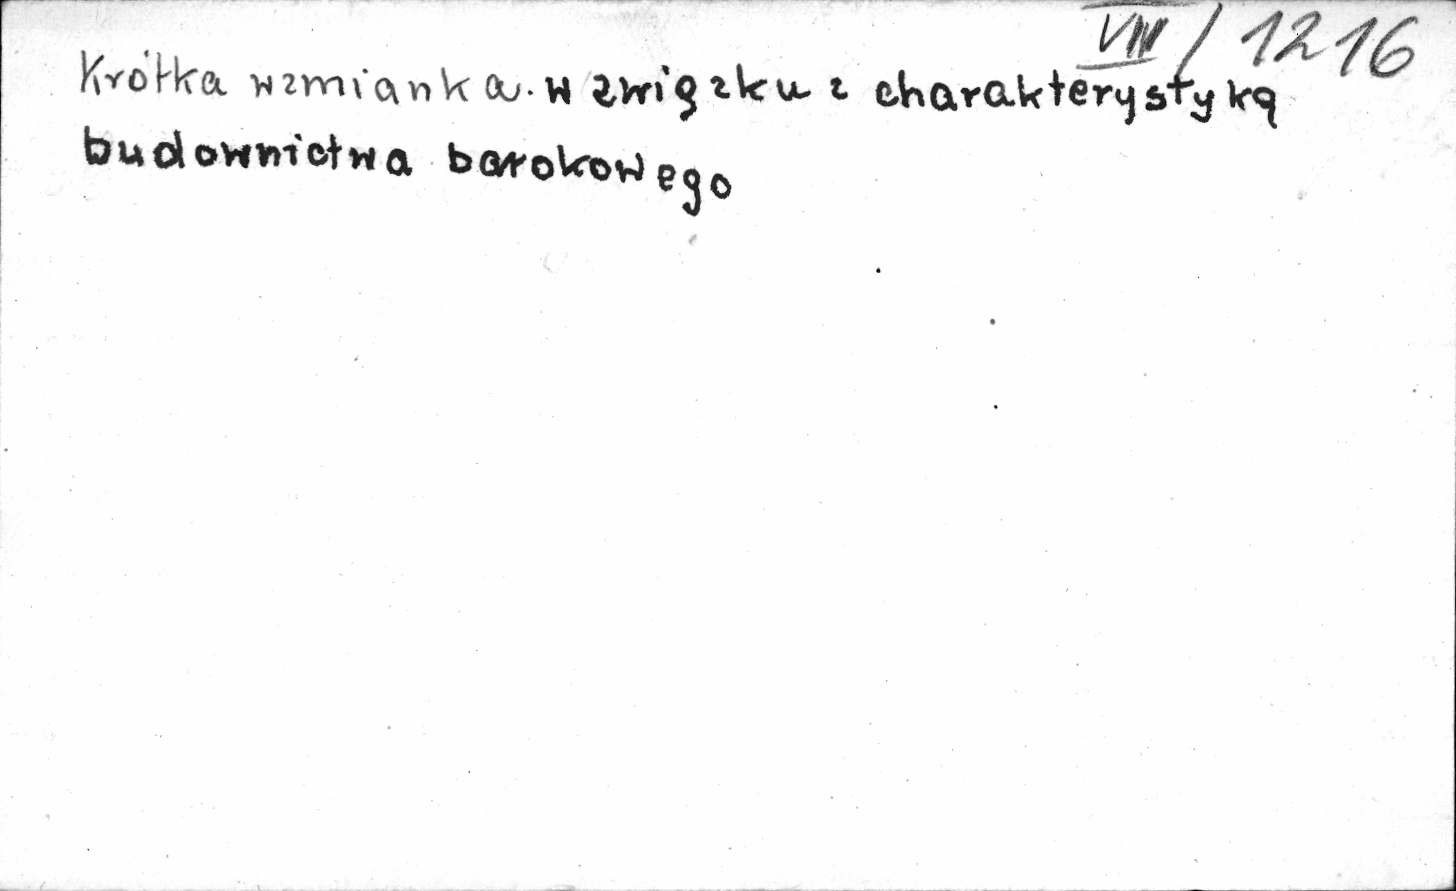 VIII / 1216
Krótka wzmianka. w związku z charakterystyką
budownictwa barokowego